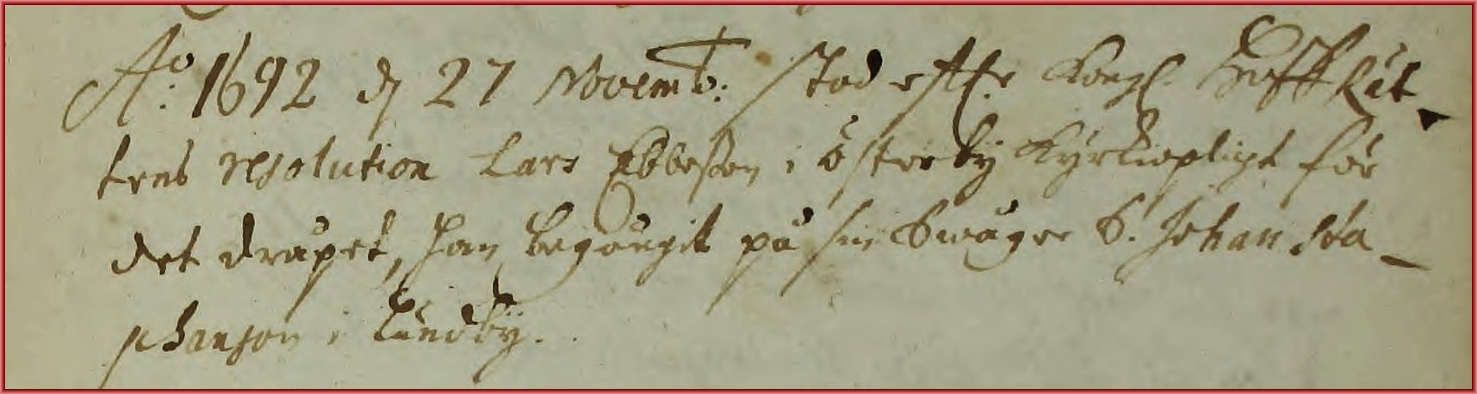 A:o 1692 d 27 Novemb: stod effter Kongl. HoffRät-
tens resolution Lars Ebbeson i Österby Kyrkiopligt för
det dråpet, han begångit på sin Swåger S. Johan Sta-
phanson i Lundby.